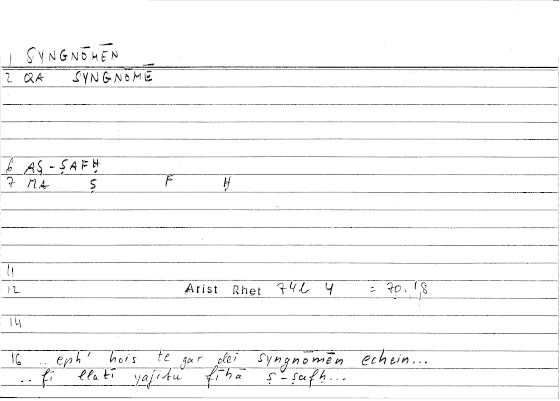 1 SYNGNŌMĒN
2 QA SYNGNŌMĒ
6 AṢ-ṢAFḤ
7 MA Ṣ F Ḥ
11
12 Arist Rhet 74b 4 = 70.18
14
16 .. eph' hois te gar dei syngnōmēn echein...
.. fī llatī yajibu fīhā ṣ-ṣafḥ...